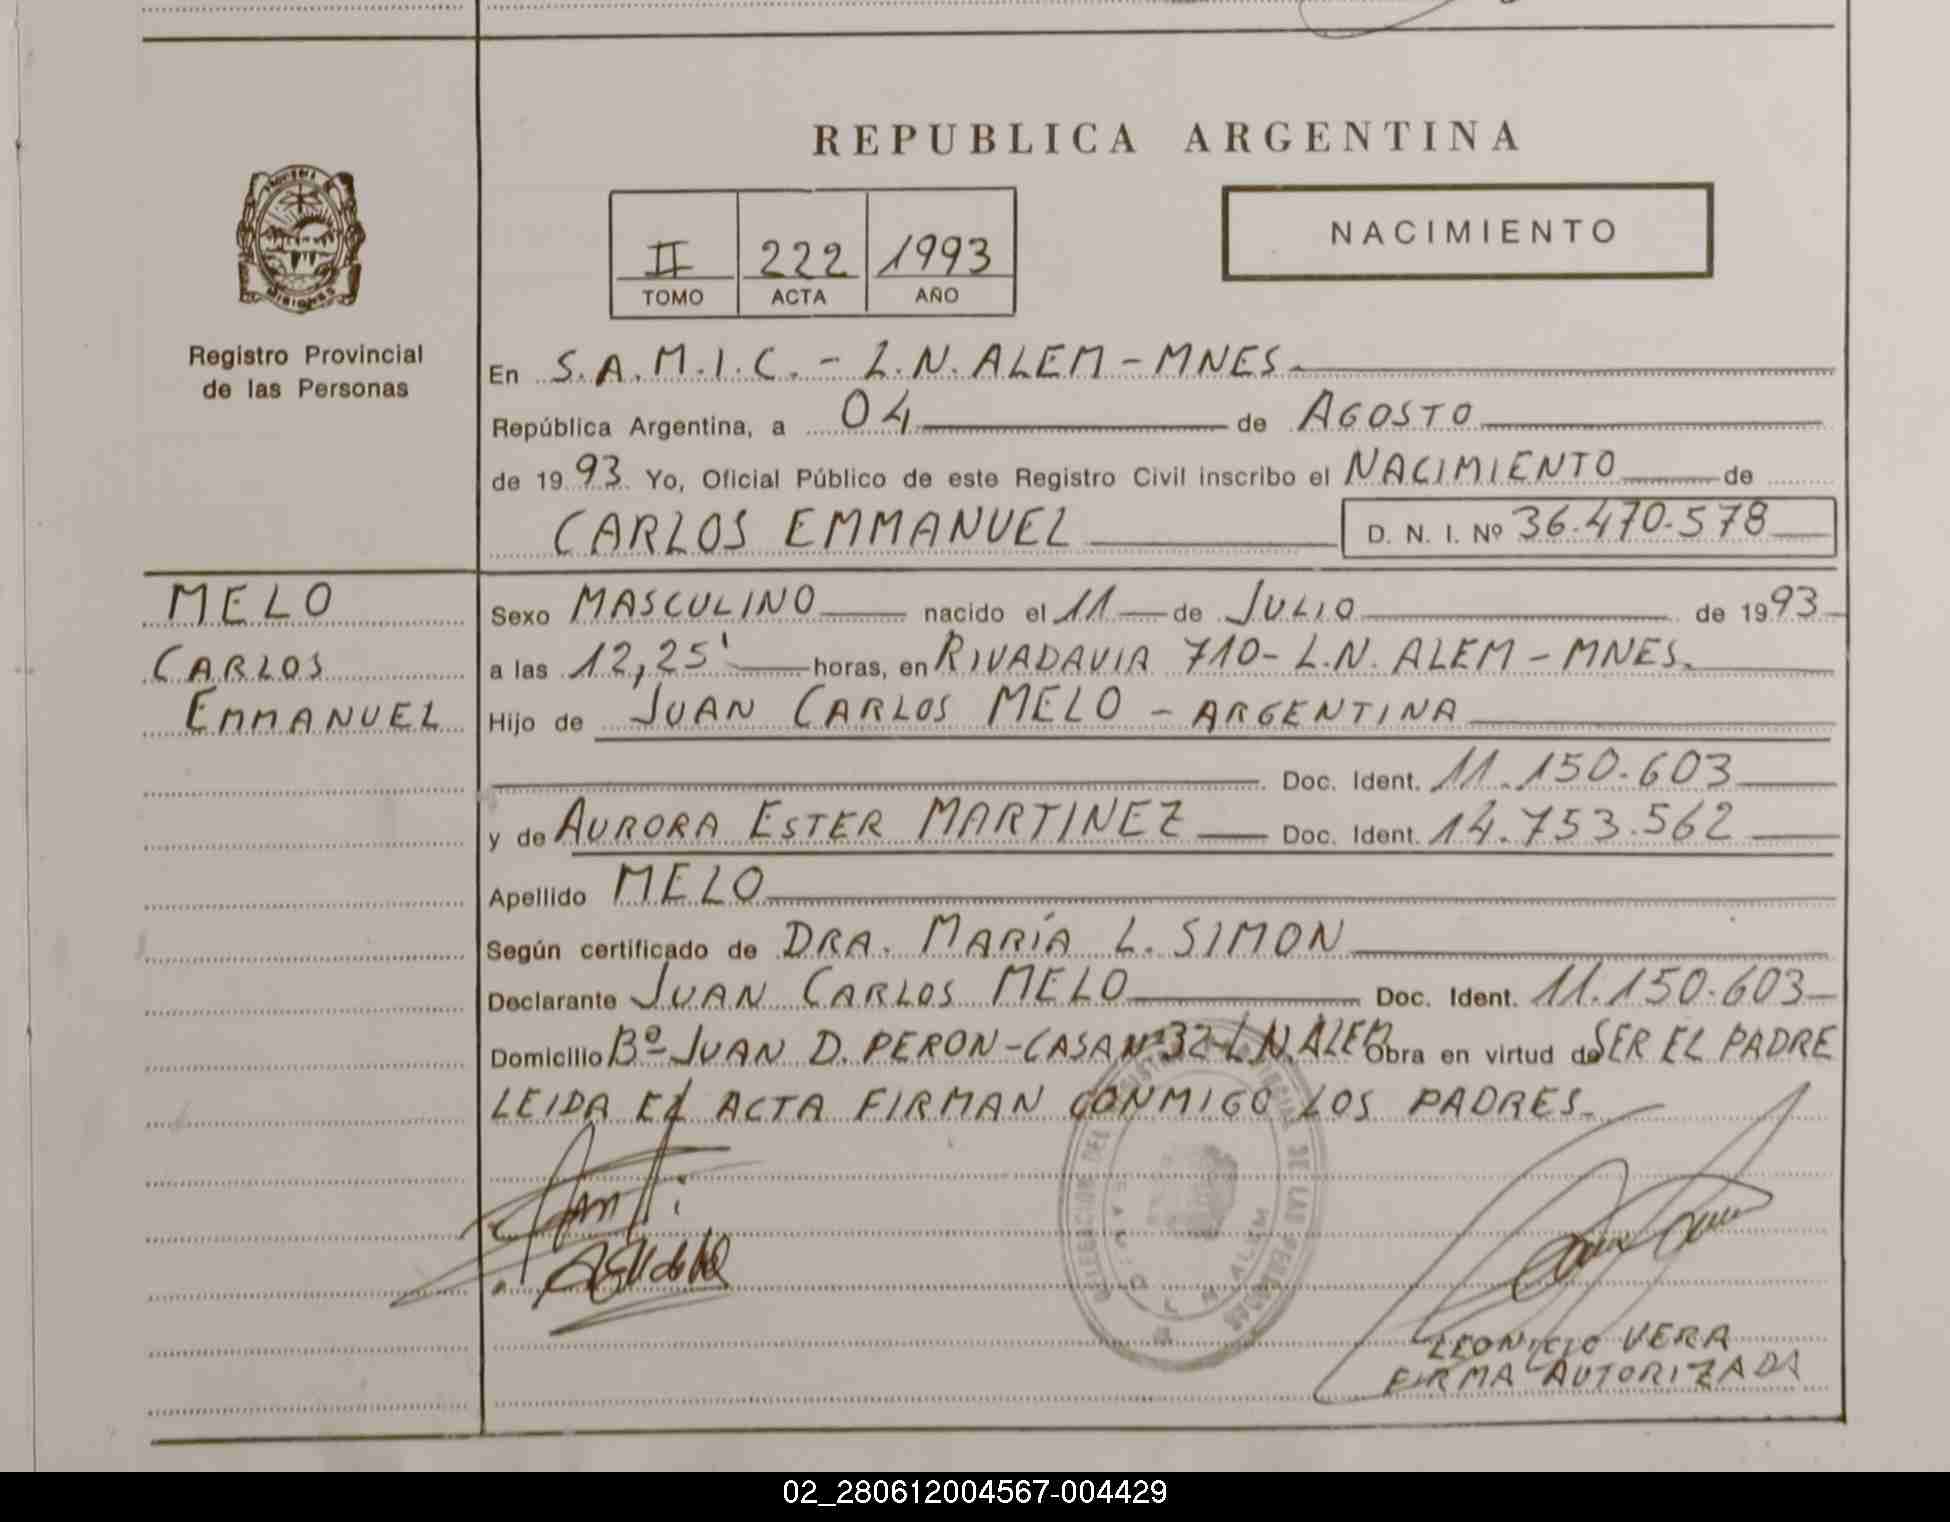 REPUBLICA ARGENTINA
NACIMIENTO
II 222 1993
TOMO ACTA AÑO
MISIONES
Registro Provincial
de las Personas
En S.A.M.I.C. - L.N. ALEM - MNES.
República Argentina, a 04 de AGOSTO
de 1993 Yo, Oficial Público de este Registro Civil inscribo el NACIMIENTO de
CARLOS EMMANUEL D. N. I. Nº 36.470.578
MELO
CARLOS
EMMANUEL
Sexo MASCULINO nacido el 11 de JULIO de 1993
a las 12,25' horas, en RIVADAVIA 710- L.N. ALEM - MNES.
Hijo de JUAN CARLOS MELO - ARGENTINA
Doc. Ident. 11.150.603
y de AURORA ESTER MARTINEZ Doc. Ident. 14.753.562
Apellido MELO
Según certificado de DRA. MARÍA L. SIMON
Declarante JUAN CARLOS MELO Doc. Ident. 11.150.603
Domicilio Bº JUAN D. PERON - CASA Nº 32 - L.N. ALEM Obra en virtud de SER EL PADRE
LEIDA EL ACTA FIRMAN CONMIGO LOS PADRES.
DELEGACION DEL REGISTRO PROVINCIAL DE LAS PERSONAS
N. ALEM
LEONICIO VERA
FIRMA AUTORIZADA
02_280612004567-004429